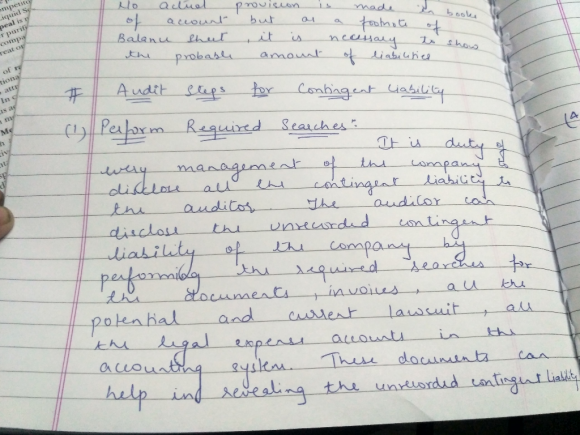 No actual provision is made in books
of account but as a footnote of
Balance Sheet, it is necessary to show
the probable amount of liabilities
# Audit Steps for Contingent Liability
(1) Perform Required Searches:
It is duty of
every management of the company to
disclose all the contingent liability to
the auditor. The auditor can
disclose the unrecorded contingent
liability of the company by
performing the required searches for
the documents, invoices, all the
potential and current lawsuit, all
the legal expense accounts in the
accounting system. These documents can
help in revealing the unrecorded contingent liability